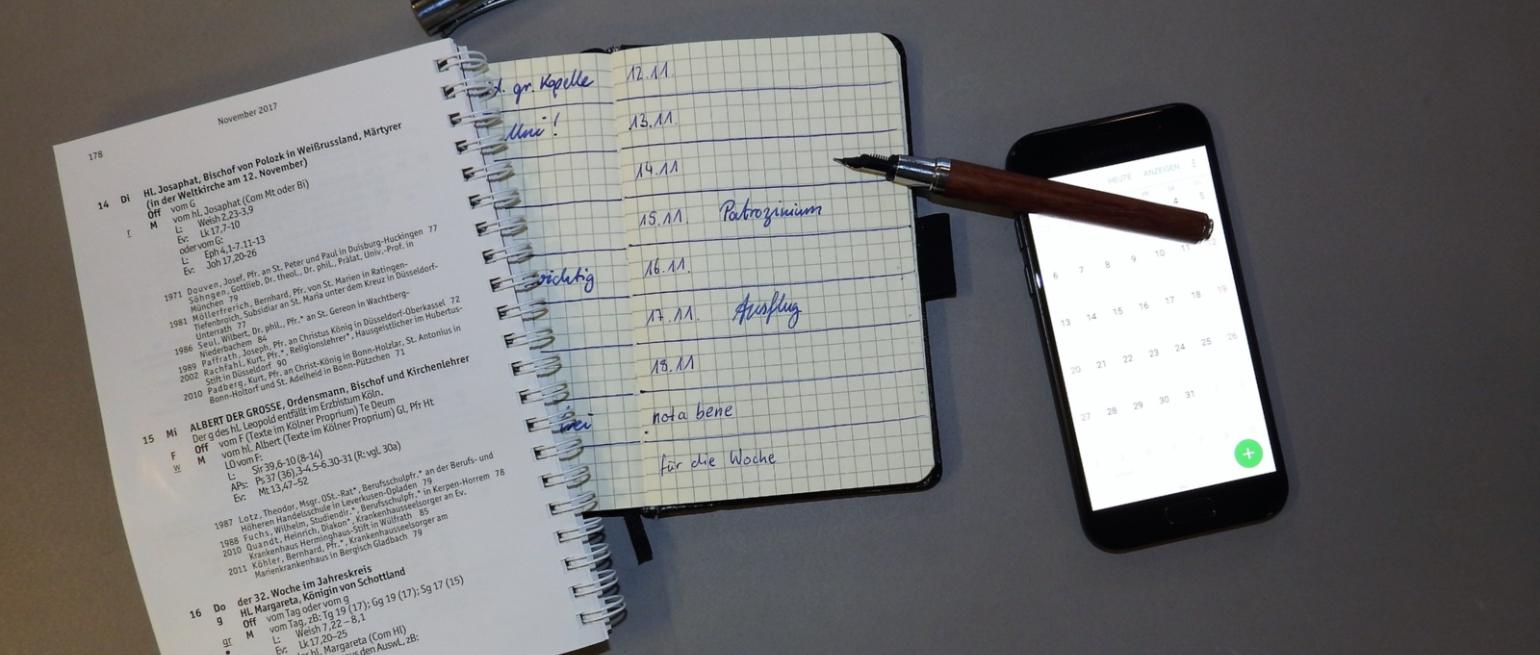 November 2017
178
14 Di Hl. Josaphat, Bischof von Polozk in Weißrussland, Märtyrer
(in der Weltkirche am 12. November)
Off vom G
r M vom hl. Josaphat (Com Mt oder Bi)
L: Weish 2,23-3,9
Ev: Lk 17,7-10
oder vom G:
L: Eph 4,1-7.11-13
Ev: Joh 17,20-26
1971 Douven, Josef, Pfr. an St. Peter und Paul in Duisburg-Huckingen 77
Söhngen, Gottlieb, Dr. theol., Dr. phil., Prälat, Univ.-Prof. in
München 79
1981 Möllerfrerich, Bernhard, Pfr. von St. Marien in Ratingen-
Tiefenbroich, Subsidiar an St. Maria unter dem Kreuz in Düsseldorf-
Unterrath 77
1986 Seul, Wilbert, Dr. phil., Pfr.* an St. Gereon in Wachtberg-
Niederbachem 84
1989 Paffrath, Joseph, Pfr. an Christus König in Düsseldorf-Oberkassel 72
2002 Rachfahl, Kurt, Pfr.*, Religionslehrer*, Hausgeistlicher im Hubertus-
Stift in Düsseldorf 90
2010 Padberg, Kurt, Pfr. an Christ-König in Bonn-Holzlar, St. Antonius in
Bonn-Holtorf und St. Adelheid in Bonn-Pützchen 71
15 Mi ALBERT DER GROSSE, Ordensmann, Bischof und Kirchenlehrer
Der g des hl. Leopold entfällt im Erzbistum Köln.
F Off vom F (Texte im Kölner Proprium) Te Deum
w M vom hl. Albert (Texte im Kölner Proprium) Gl, Pfr Ht
LO vom F:
L: Sir 39,6-10 (8-14)
APs: Ps 37 (36),3-4.5-6.30-31 (R: vgl. 30a)
Ev: Mt 13,47-52
1987 Lotz, Theodor, Msgr. OSt.-Rat*, Berufsschulpfr.* an der Berufs- und
Höheren Handelsschule in Leverkusen-Opladen 79
1988 Fuchs, Wilhelm, Studiendir.*, Berufsschulpfr.* in Kerpen-Horrem 78
2010 Quandt, Heinrich, Diakon*, Krankenhausseelsorger an Ev.
Krankenhaus Herminghaus-Stift in Wülfrath 85
2011 Köhler, Bernhard, Pfr.*, Krankenhausseelsorger am
Marienkrankenhaus in Bergisch Gladbach 79
der 32. Woche im Jahreskreis
16 Do Hl. Margareta, Königin von Schottland
g Off vom Tag oder vom g
gr M vom Tag, zB: Tg 19 (17); Gg 19 (17); Sg 17 (15)
L: Weish 7,22 – 8,1
Ev: Lk 17,20-25
hl. Margareta (Com Hl)
aus den AuswL, zB:
gr. Kapelle
wichtig
12.11.
13.11.
14.11
15.11. Patrozinium
16.11.
17.11. Ausflug
18.11
nota bene
für die Woche
HEUTE ANZEIGEN
4 5
6 7 8 9 10 11 12
13 14 15 16 17 18 19
20 21 22 23 24 25 26
27 28 29 30 31
+